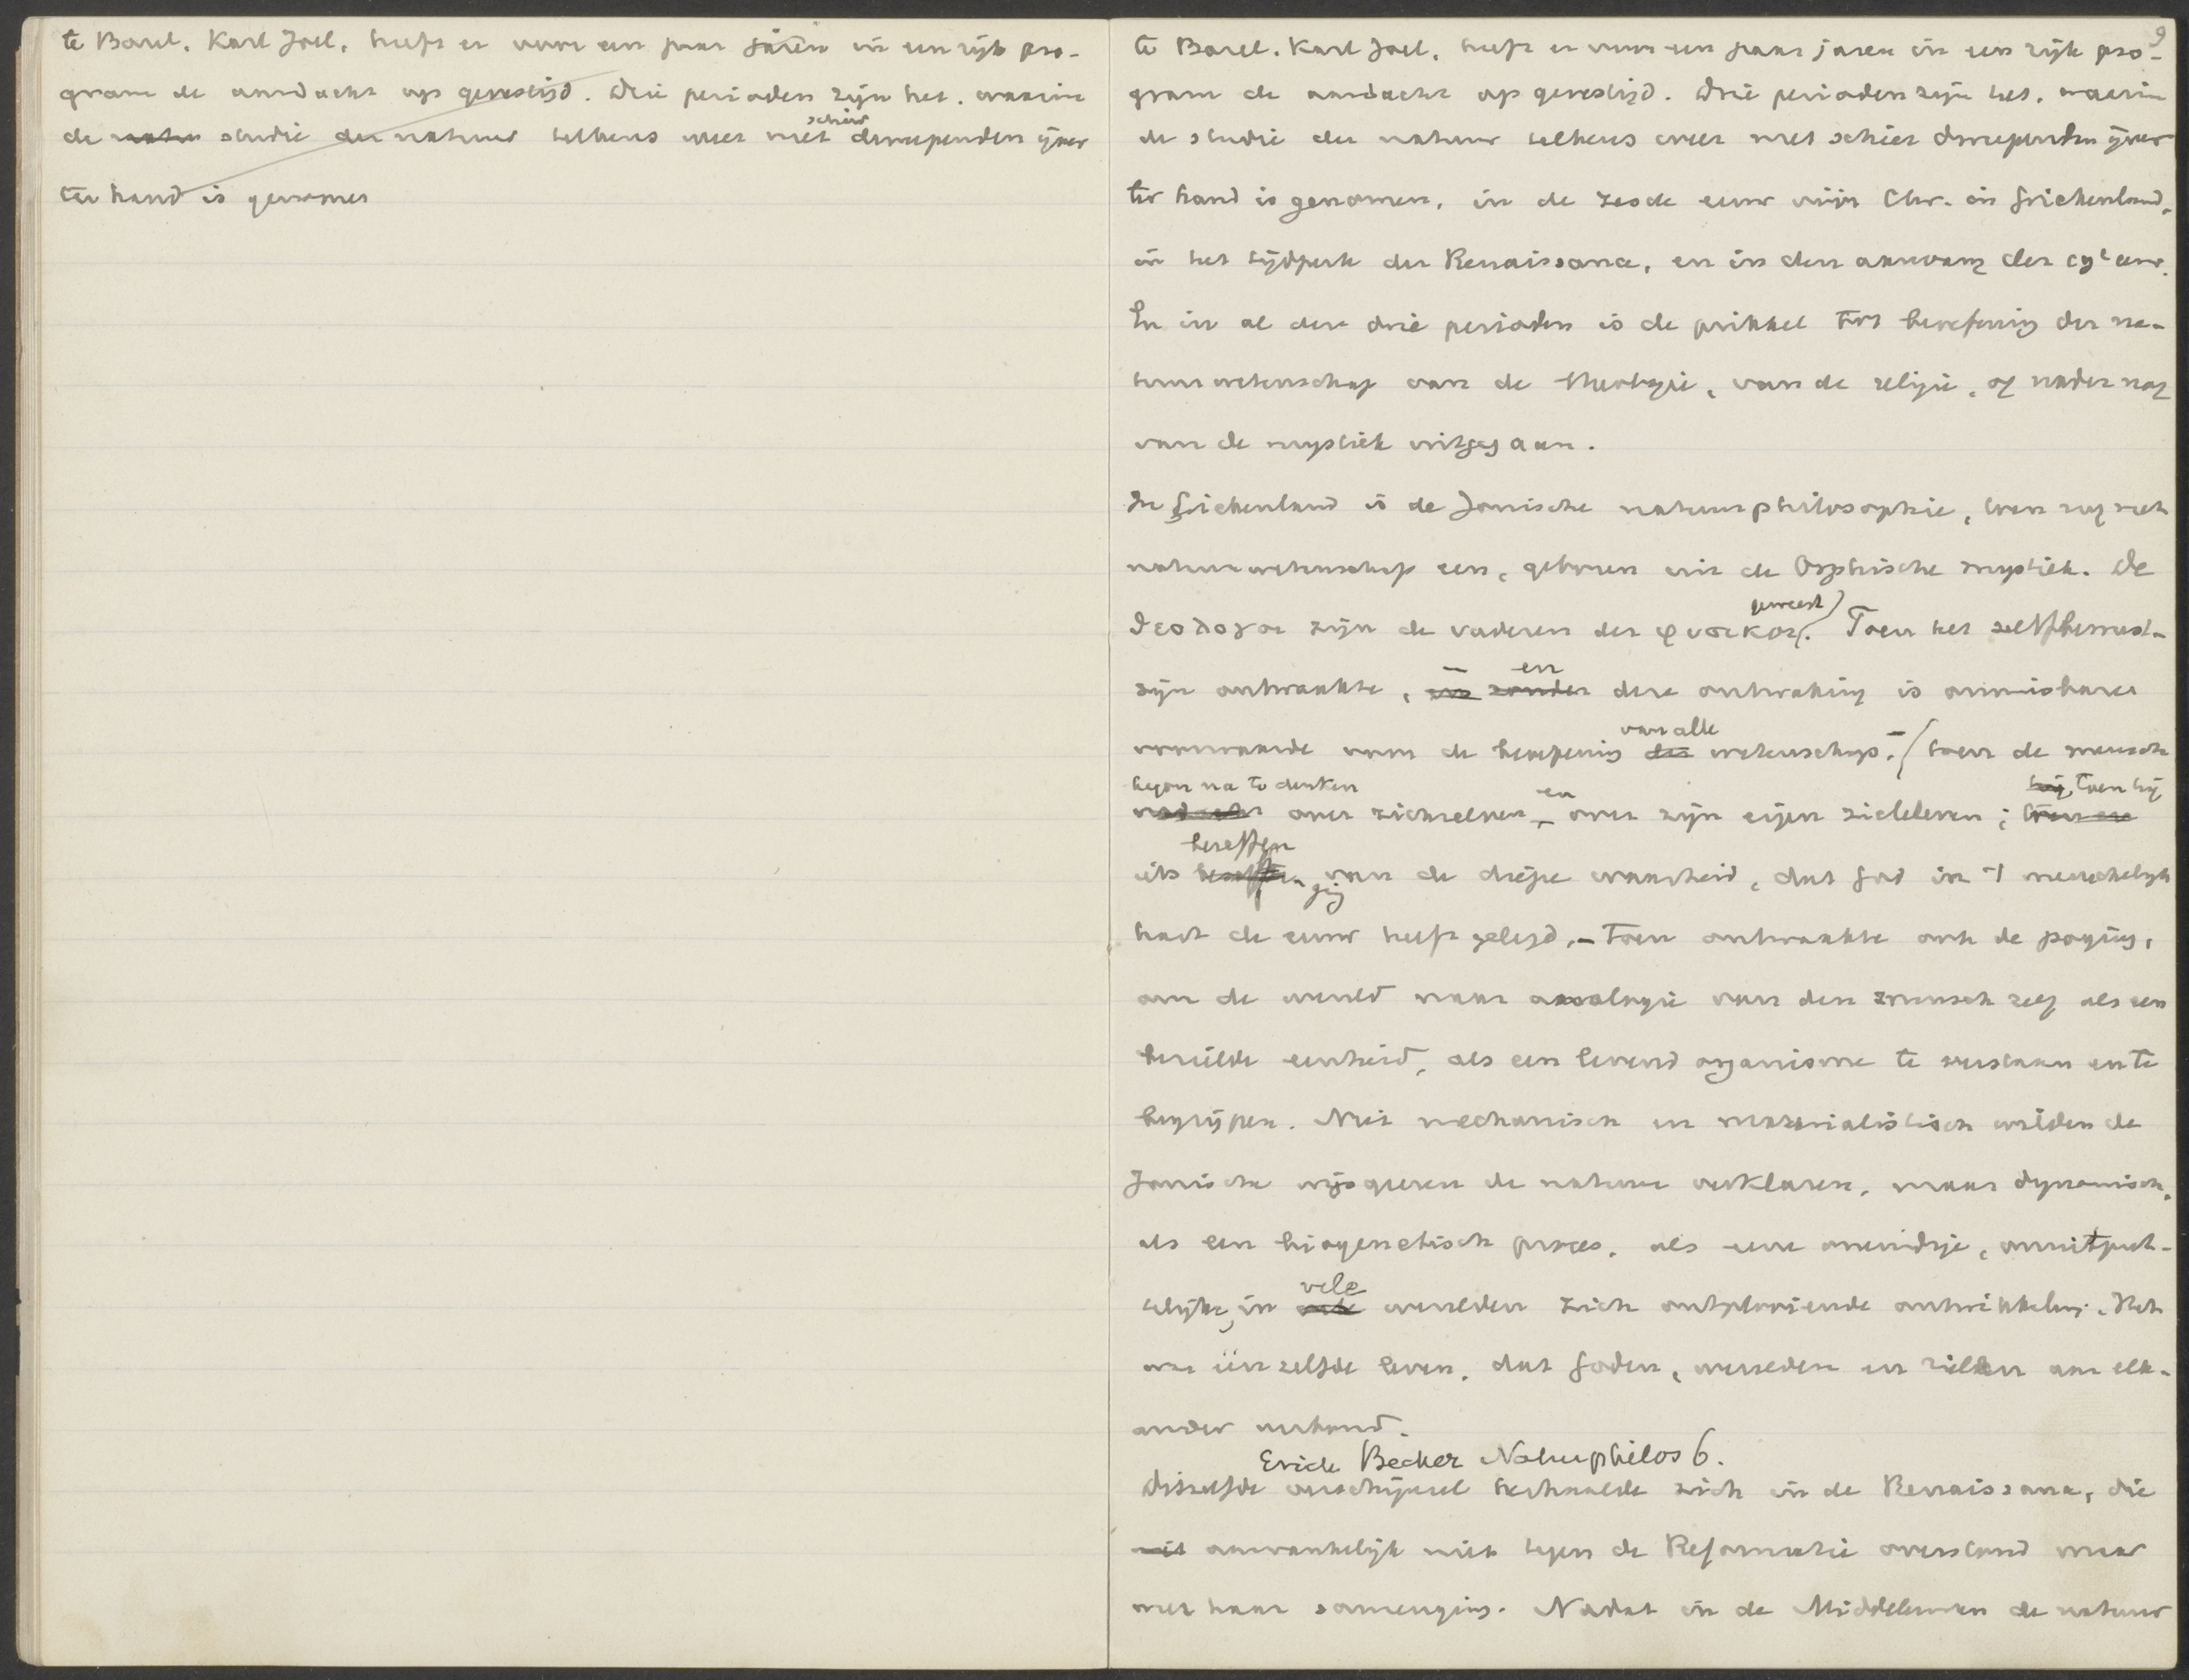 te Basel, Karl Joël, heeft er voor een paar jaren in een rijk pro-
gram de aandacht op gevestigd. Drie perioden zijn het, waarin
de natu studie der natuur telkens weer met schier dweependen ijver
ter hand is genomen
9
te Basel, Karl Joël, heeft er voor een paar jaren in een rijk pro-
gram de aandacht op gevestigd. Drie perioden zijn het, waarin
de studie der natuur telkens weer met schier dweependen ijver
ter hand is genomen, in de zesde eeuw vóór Chr. in Griekenland,
in het tijdperk der Renaissance, en in den aanvang der 19e eeuw.
En in al deze drie perioden is de prikkel tot beoefening der na-
tuurwetenschap van de theologie, van de religie, of nader nog
van de mystiek uitgegaan.
In Griekenland is de Ionische natuurphilosophie, toen nog met
natuurwetenschap een, geboren uit de Orphische mystiek. De
θεολογοι zijn de vaderen der φυσικοι geweest. Toen het zelfbewust-
zijn ontwaakte, – in zonder en deze ontwaking is onmisbare
voorwaarde voor de beoefening der van alle wetenschap. – toen de mensch
begon na te denken over zichzelven en over zijn eigen zieleleven; toen hij
iets beseffen ging van de diepe waarheid, dat God in 't menschelijk
hart de eeuw heeft gelegd, – toen ontwaakte ook de poging,
om de wereld naar analogie van den mensch zelf als een
bezielde eenheid, als een levend organisme te verstaan en te
begrijpen. Niet mechanisch en materialistisch wilden de
Ionische wijsgeeren de natuur verklaren, maar dynamisch,
als een biogenetisch proces, als eene oneindige, onuitput-
telijke, in vele werelden zich ontplooiende ontwikkeling. Het
was éénzelfde leven, dat Goden, werelden en zielen aan elk-
ander verbond.
Erich Becher Naturphilos 6.
Ditzelfde verschijnsel herhaalde zich in de Renaissance, die
niet aanvankelijk niet tegen de Reformatie overstond maar
met haar samenging. Nadat in de Middeleeuwen de natuur